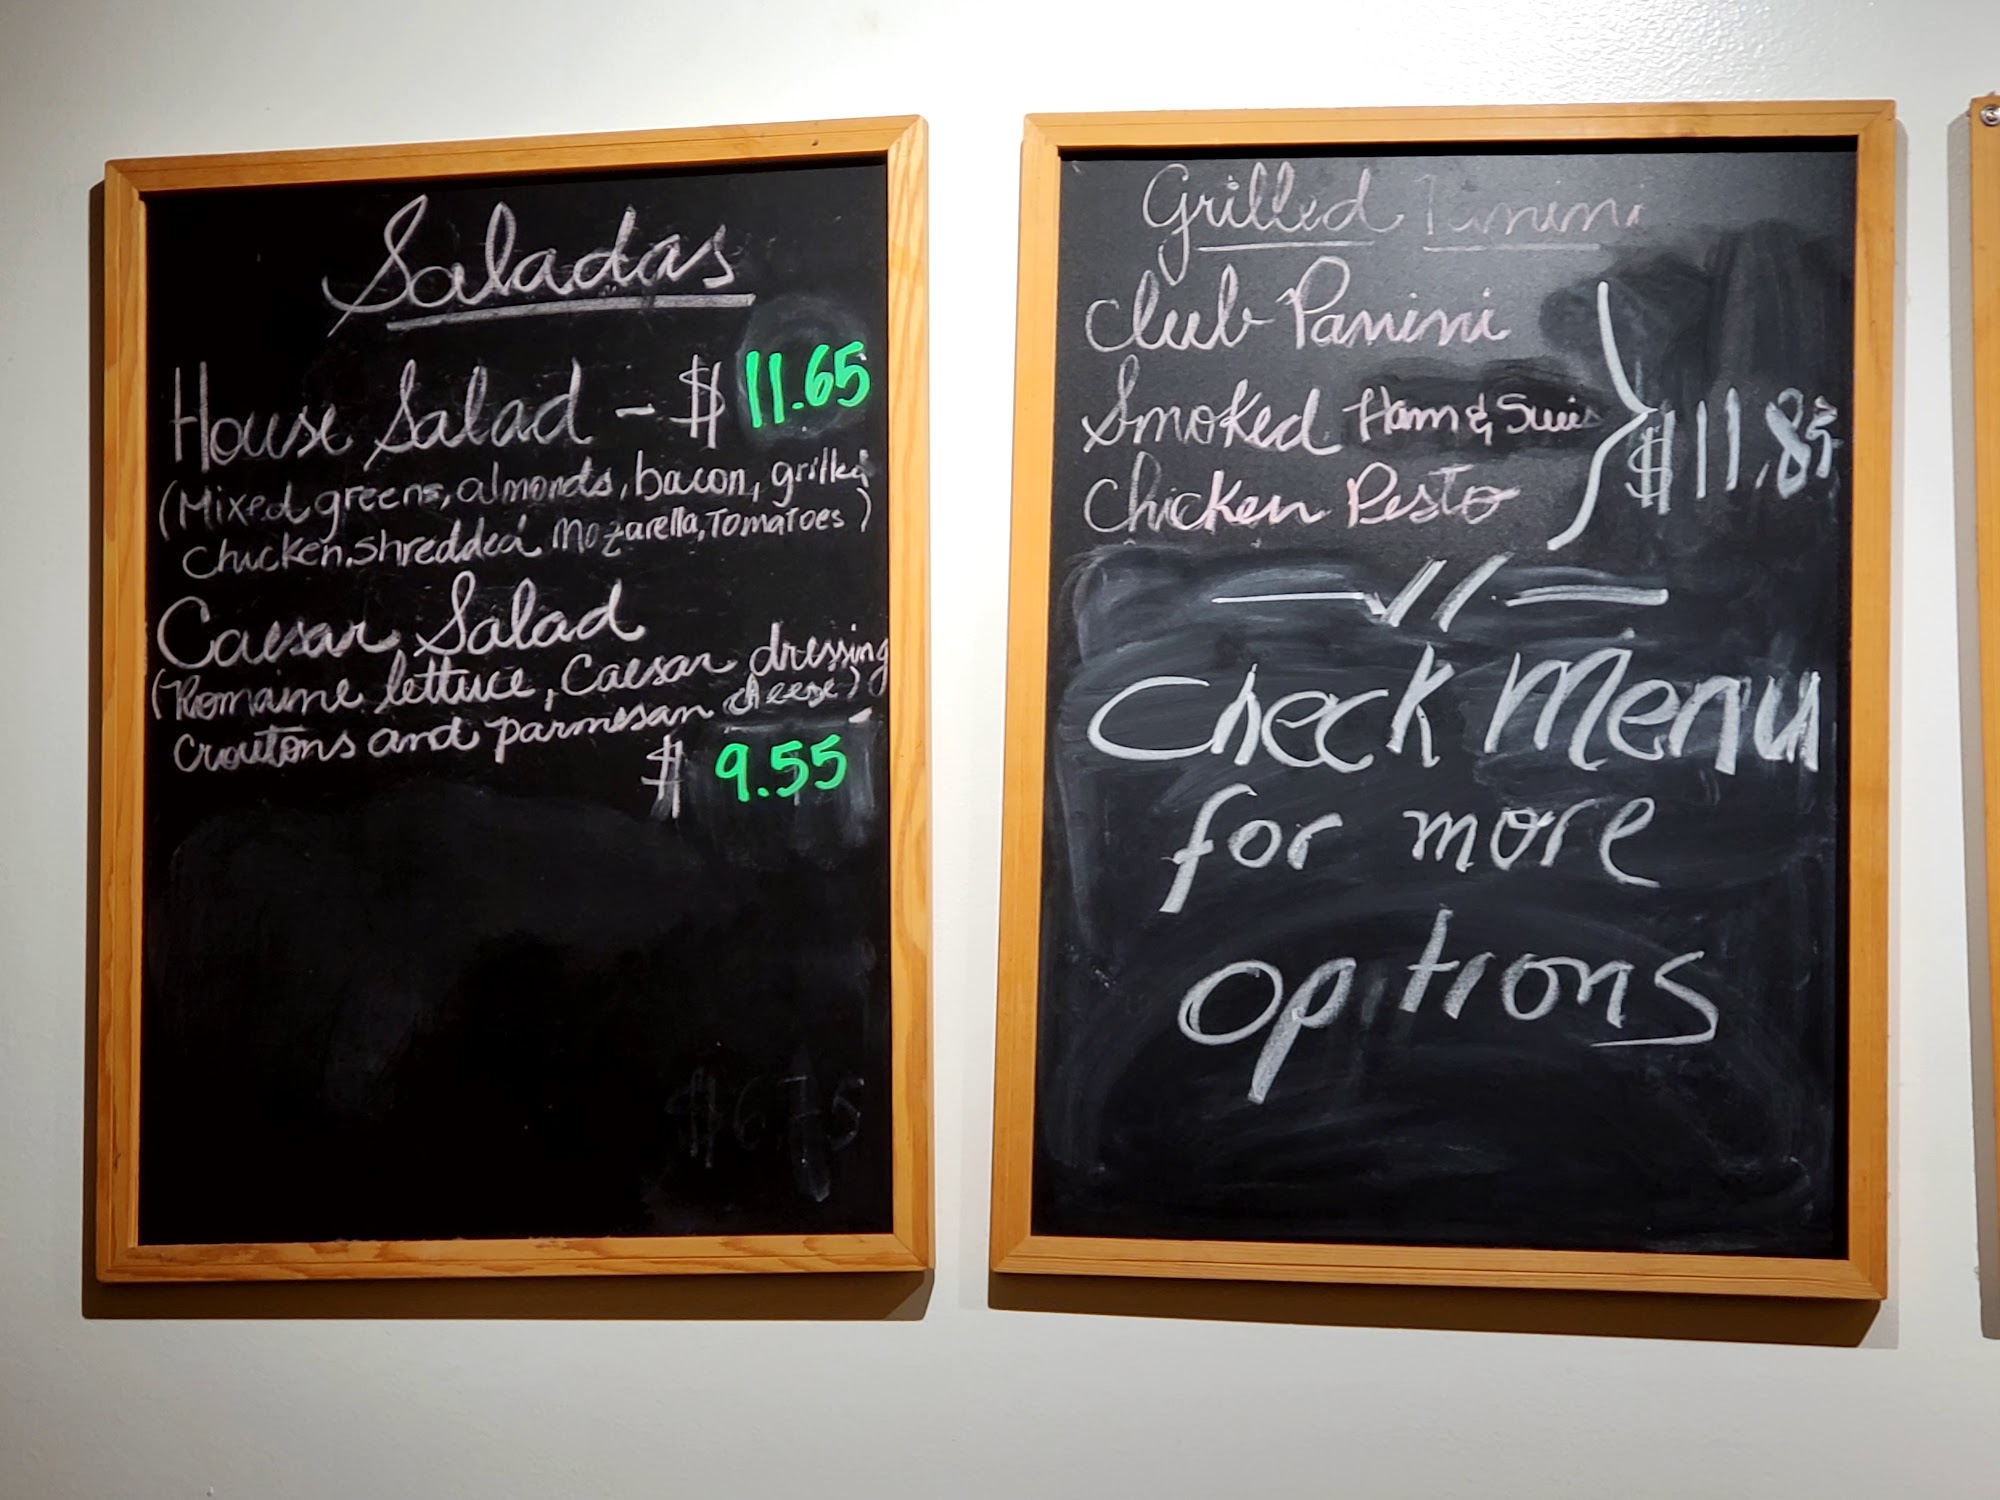 Saladas
House Salad - $ 11.65
(Mixed greens, almonds, bacon, grilled
Chicken, Shredded Mozarella, Tomatoes)
Caesar Salad
(Romaine lettuce, Caesar dressing
croutons and parmesan cheese)
$ 9.55
Grilled Panini
Club Panini
Smoked Ham & Swis
Chicken Pesto
$11.85
Check Menu
for more
options